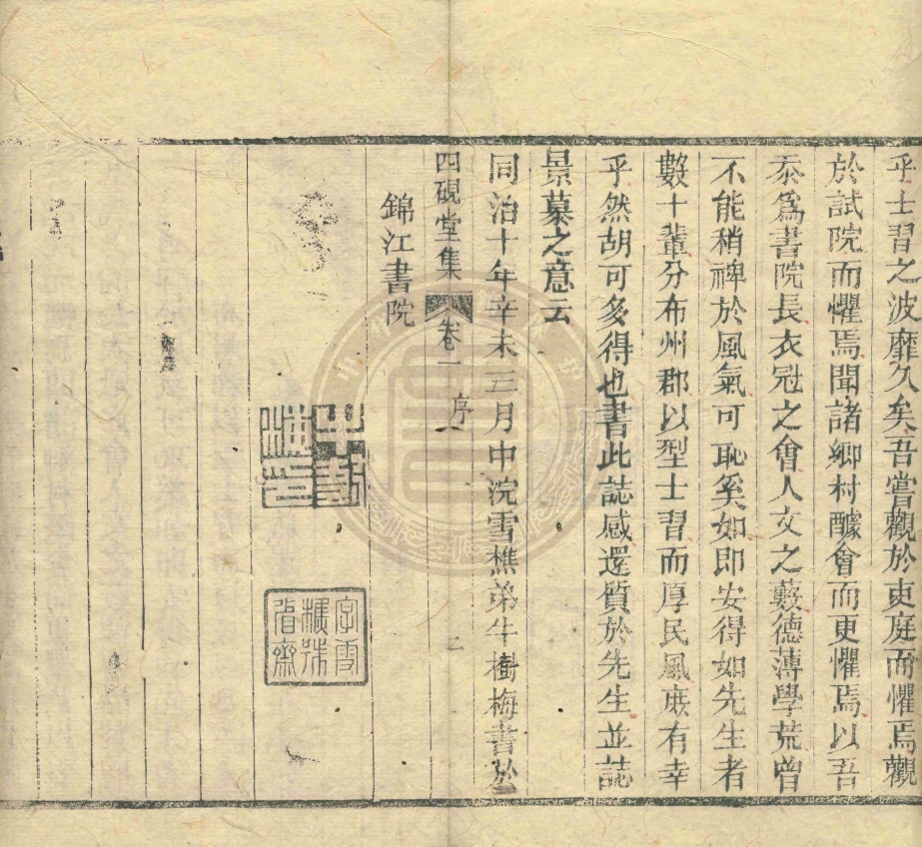 乎士習之波靡久矣吾嘗觀於吏庭而懼焉觀
於試院而懼焉聞諸鄉村醵會而更懼焉以吾
忝爲書院長衣冠之會人文之藪德薄學荒曾
不能稍裨於風氣可恥奚如即安得如先生者
數十輩分布州郡以型士習而厚民風庶有幸
乎然胡可多得也書此誌感還質於先生並誌
景慕之意云
同治十年辛未三月中浣雪樵弟牛樹梅書於
四硯堂集 卷一 序 二
錦江書院
牛樹梅印
字雪樵號省齋